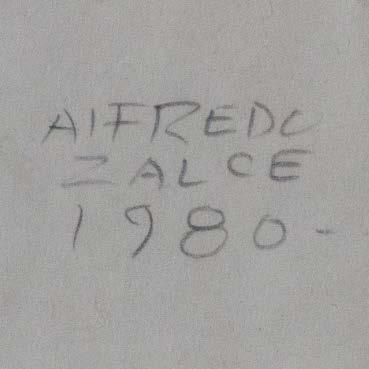 ALFREDO
ZALCE
1980-